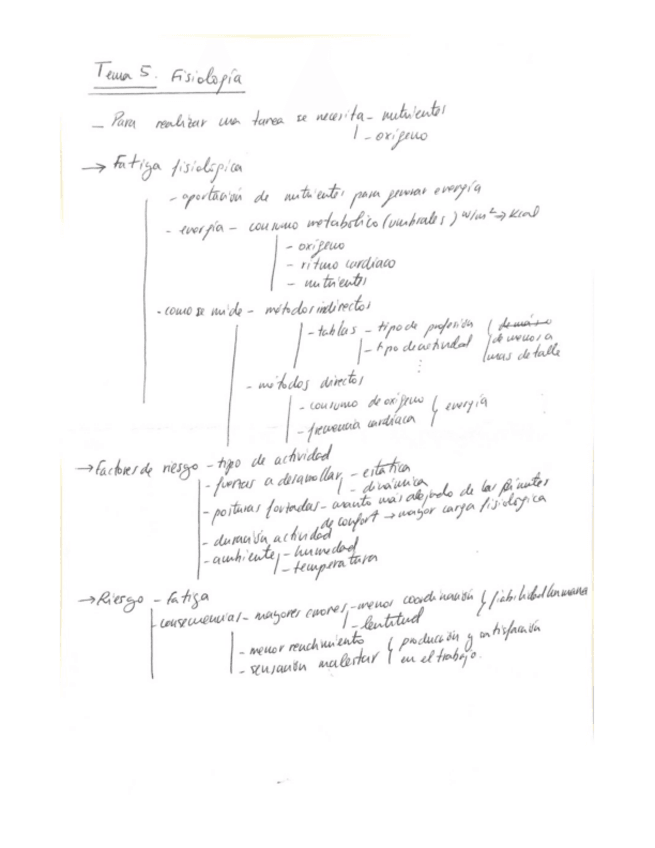 Tema 5. Fisiología
- Para realizar una tarea se necesita - nutrientes
- oxígeno
→ Fatiga fisiológica
- aportación de nutrientes para generar energía
- energía - consumo metabólico (umbrales) w/m² → kcal
- oxígeno
- ritmo cardiaco
- nutrientes
- como se mide - métodos indirectos
- tablas - tipo de profesión
- tipo de actividad
de menos a
mas detalle
- métodos directos
- consumo de oxígeno } energía
- frecuencia cardiaca
→ Factores de riesgo - tipo de actividad
- fuerzas a desarrollar - estática
- dinámica
- posturas forzadas - cuanto más alejado de los
de confort → mayor carga fisiológica
- duración actividad
- ambiente - humedad
- temperatura
→ Riesgo - Fatiga
- consecuencias - mayores errores - menor coordinación } fiabilidad humana
- lentitud
- menor rendimiento } producción y satisfacción
- sensación malestar en el trabajo.